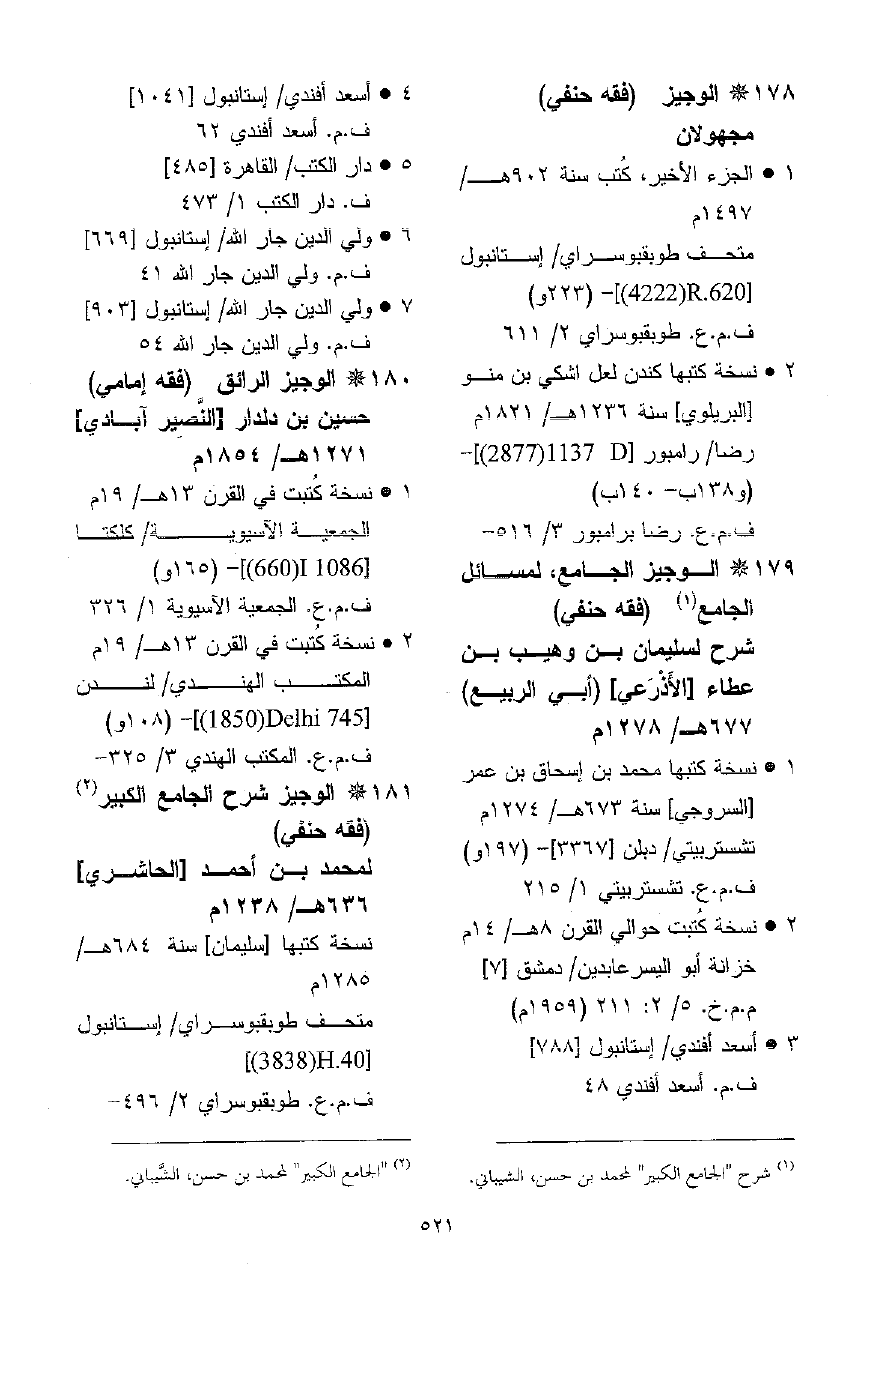 ١٧٨ * الوجيز (فقه حنفي)
مجهولان
١ • الجزء الأخير، كُتب سنة ٩٠٢هـ/
١٤٩٧م
متحف طوبقبوسراي/ إستانبول
[(4222)R.620]– (٢٢٣و)
ف.م.ع. طوبقبوسراي ٢/ ٦١١
٢ • نسخة كتبها كندن لعل اشكي بن منو
[البريلوي] سنة ١٢٣٦هـ/ ١٨٢١م
رضا/ رامبور [(2877)1137 D]–
(و١٣٨ب– ١٤٠ب)
ف.م.ع. رضا برامبور ٣/ ٥١٦–
١٧٩ * الوجيز الجامع، لمسائل
الجامع(١) (فقه حنفي)
شرح لسليمان بن وهيب بن
عطاء [الأَذْرَعي] (أبي الربيع)
٦٧٧هـ/ ١٢٧٨م
١ • نسخة كتبها محمد بن إسحاق بن عمر
[السروجي] سنة ٦٧٣هـ/ ١٢٧٤م
تشستربيتي/ دبلن [٣٣٦٧]– (١٩٧و)
ف.م.ع. تشستربيتي ١/ ٢١٥
٢ • نسخة كُتبت حوالي القرن ٨هـ/ ١٤م
خزانة أبو اليسر عابدين/ دمشق [٧]
م.م.خ. ٥/ ٢: ٢١١ (١٩٥٩م)
٣ • أسعد أفندي/ إستانبول [٧٨٨]
ف.م. أسعد أفندي ٤٨
(١) شرح "الجامع الكبير" لمحمد بن حسن، الشيباني.
٤ • أسعد أفندي/ إستانبول [١٠٤١]
ف.م. أسعد أفندي ٦٢
٥ • دار الكتب/ القاهرة [٤٨٥]
ف. دار الكتب ١/ ٤٧٣
٦ • ولي الدين جار الله/ إستانبول [٦٦٩]
ف.م. ولي الدين جار الله ٤١
٧ • ولي الدين جار الله/ إستانبول [٩٠٣]
ف.م. ولي الدين جار الله ٥٤
١٨٠ * الوجيز الرائق (فقه إمامي)
حسين بن دلدار [النَّصير آبادي]
١٢٧١هـ/ ١٨٥٤م
١ • نسخة كُتبت في القرن ١٣هـ/ ١٩م
الجمعية الآسيوية/ كلكتا
[(660)I 1086]– (١٦٥و)
ف.م.ع. الجمعية الآسيوية ١/ ٣٢٦
٢ • نسخة كُتبت في القرن ١٣هـ/ ١٩م
المكتب الهندي/ لندن
[(1850)Delhi 745]– (١٠٨و)
ف.م.ع. المكتب الهندي ٣/ ٣٢٥–
١٨١ * الوجيز شرح الجامع الكبير(٢)
(فقه حنفي)
لمحمد بن أحمد [الحاشري]
٦٣٦هـ/ ١٢٣٨م
نسخة كتبها [سليمان] سنة ٦٨٤هـ/
١٢٨٥م
متحف طوبقبوسراي/ إستانبول
[(3838)H.40]
ف.م.ع. طوبقبوسراي ٢/ ٤٩٦–
(٢) "الجامع الكبير" لمحمد بن حسن، الشَّيباني.
٥٢١